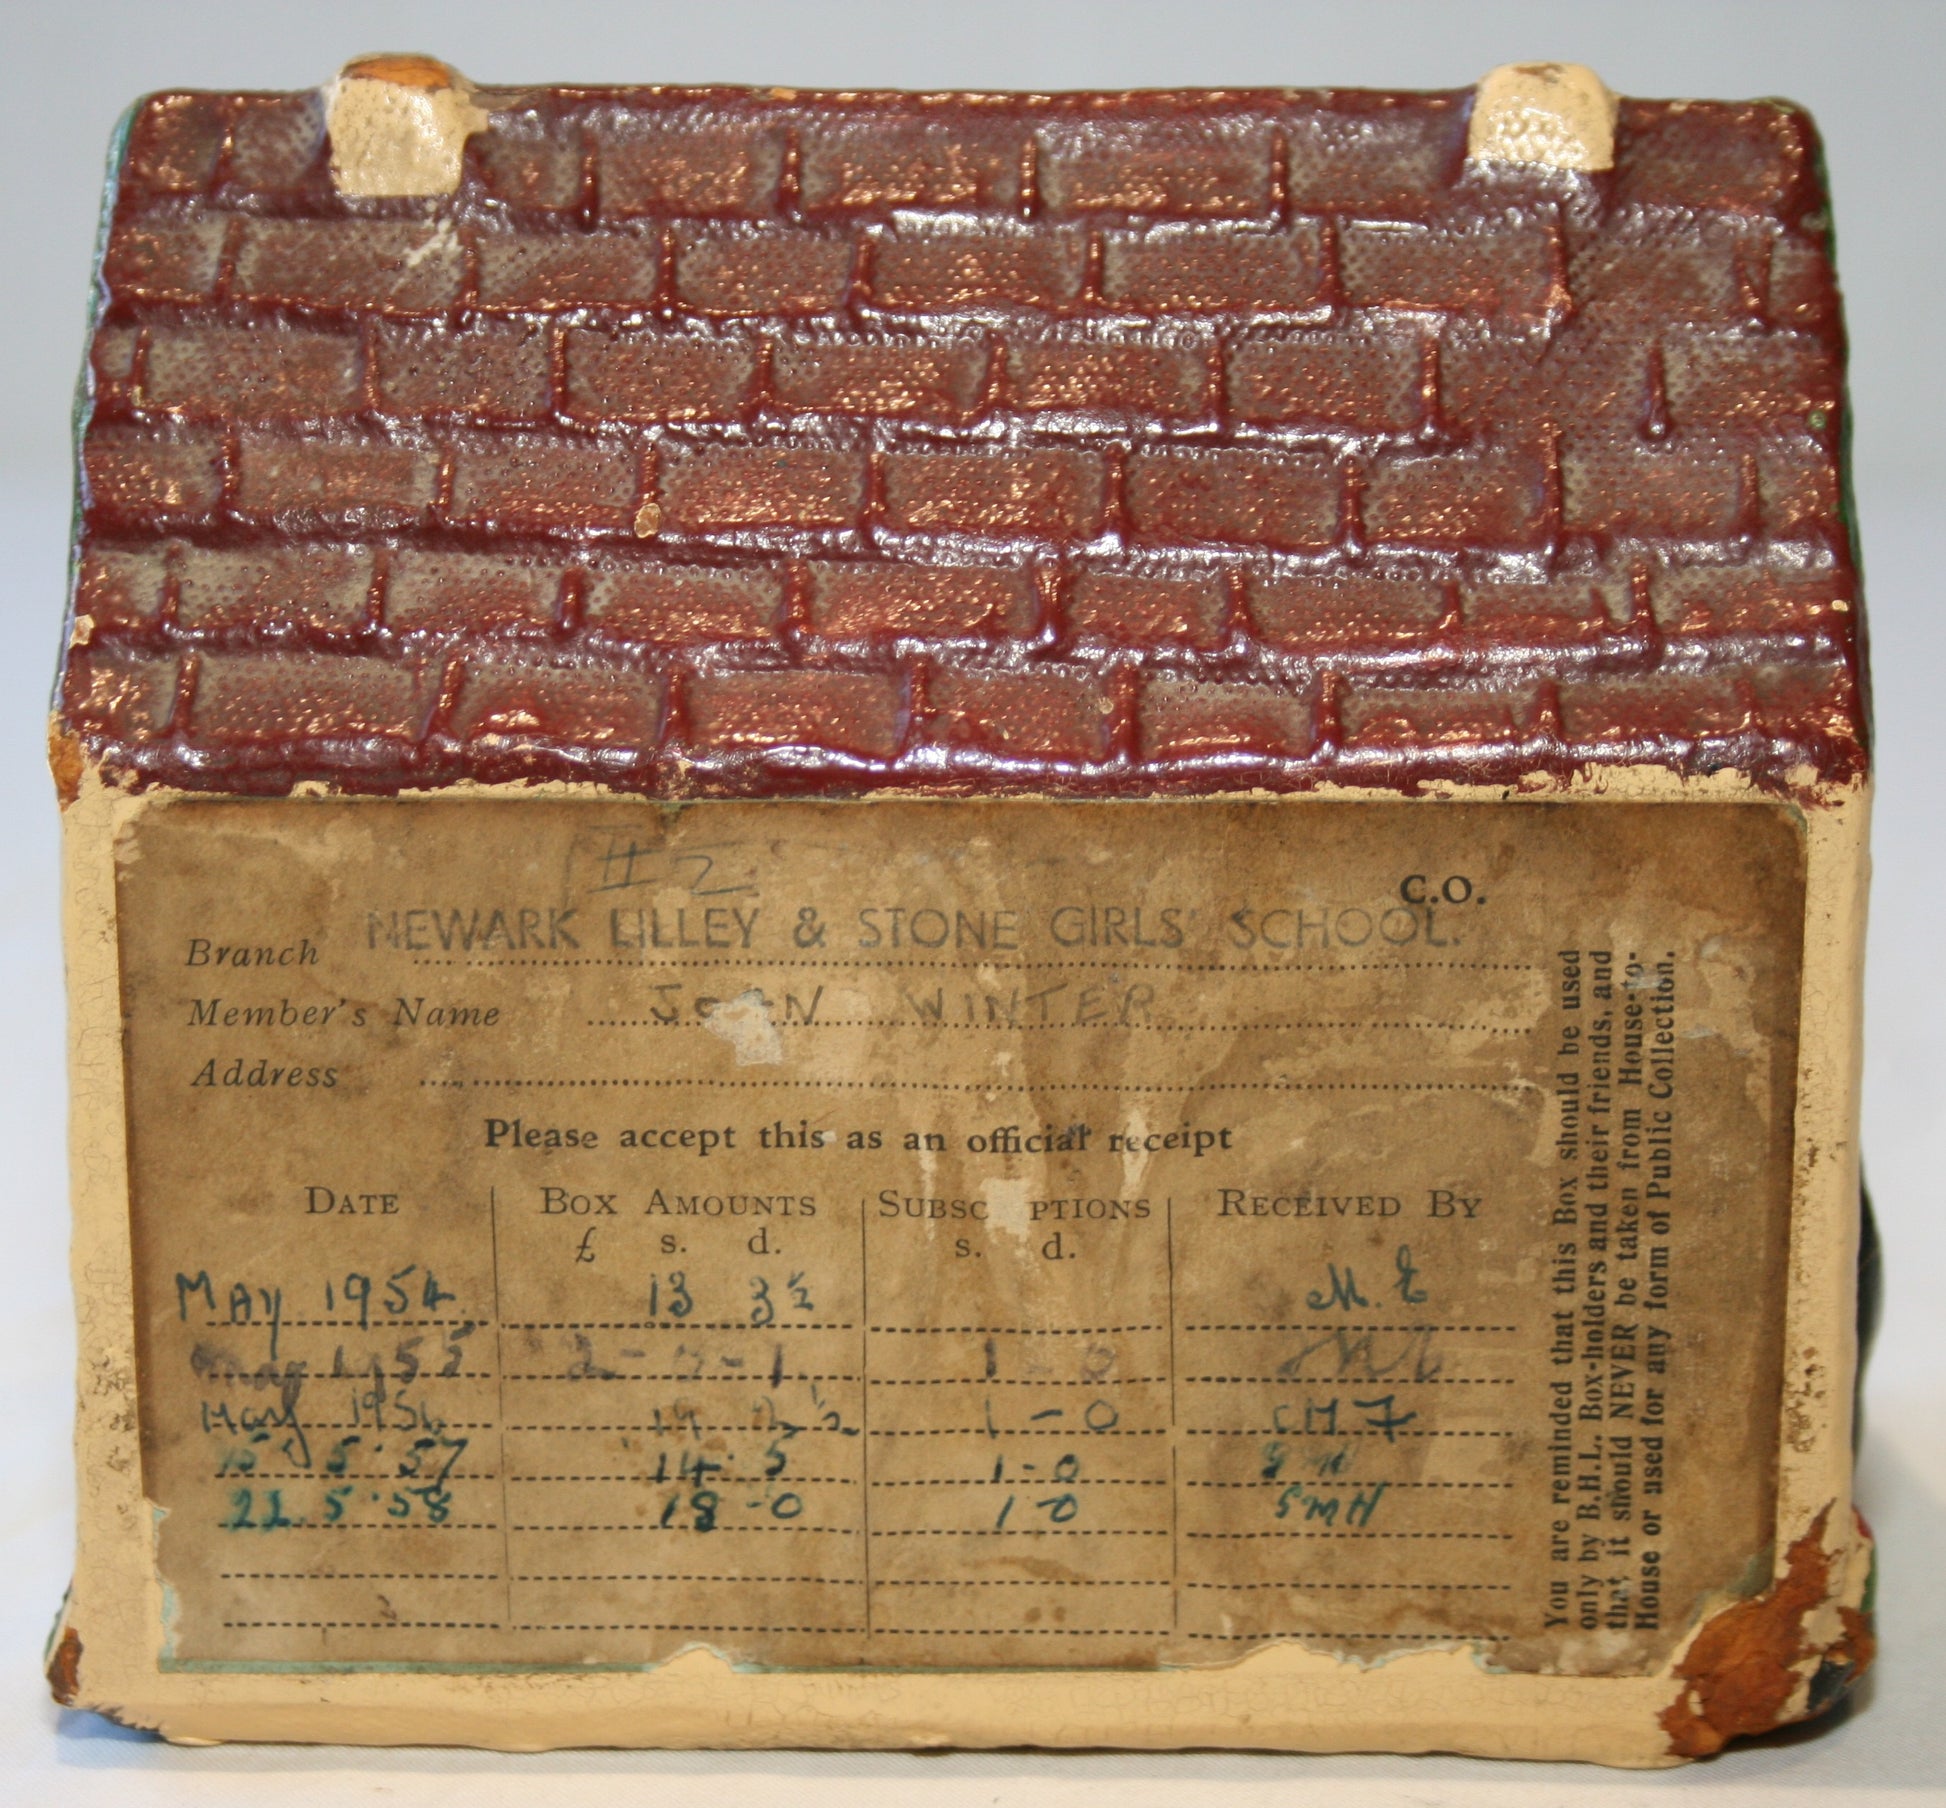 C.O.
Branch NEWARK LILLEY & STONE GIRLS' SCHOOL.
Member's Name JOAN WINTER
Address
Please accept this as an official receipt
DATE BOX AMOUNTS SUBSC PTIONS RECEIVED BY
£ s. d. s. d.
MAY 1954 13 3½ M. E
May 1955 1 - 0
May 1956 2½ 1 - 0
15 5·57 14·5 1-0
21. 5·58 18-0 1-0
You are reminded that this Box should be used
only by B.H.L. Box-holders and their friends, and
that it should NEVER be taken from House-to-
House or used for any form of Public Collection.